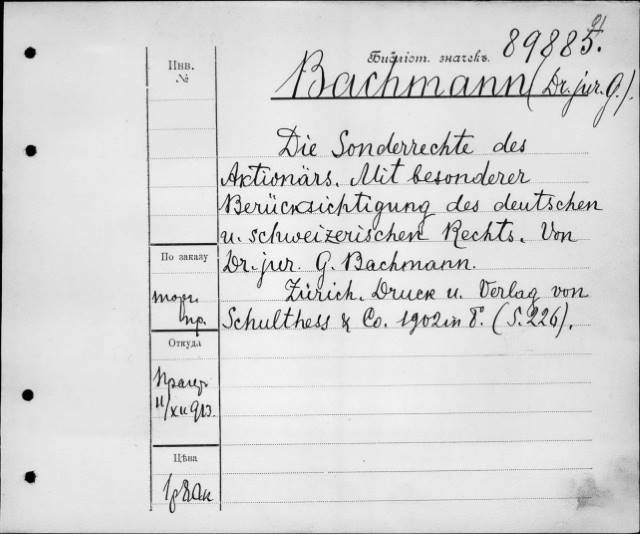 89885.
Инв.
№
Библіот. значекъ.
Bachmann (Dr. jur. G.).
Die Sonderrechte des
Aktionärs. Mit besonderer
Berücksichtigung des deutschen
u. schweizerischen Rechts. Von
Dr. jur. G. Bachmann.
Zürich. Druck u. Verlag von
Schulthess & Co. 1902 in 8°. (S. 226).
По заказу
торг.
пр.
Откуда
Цѣна